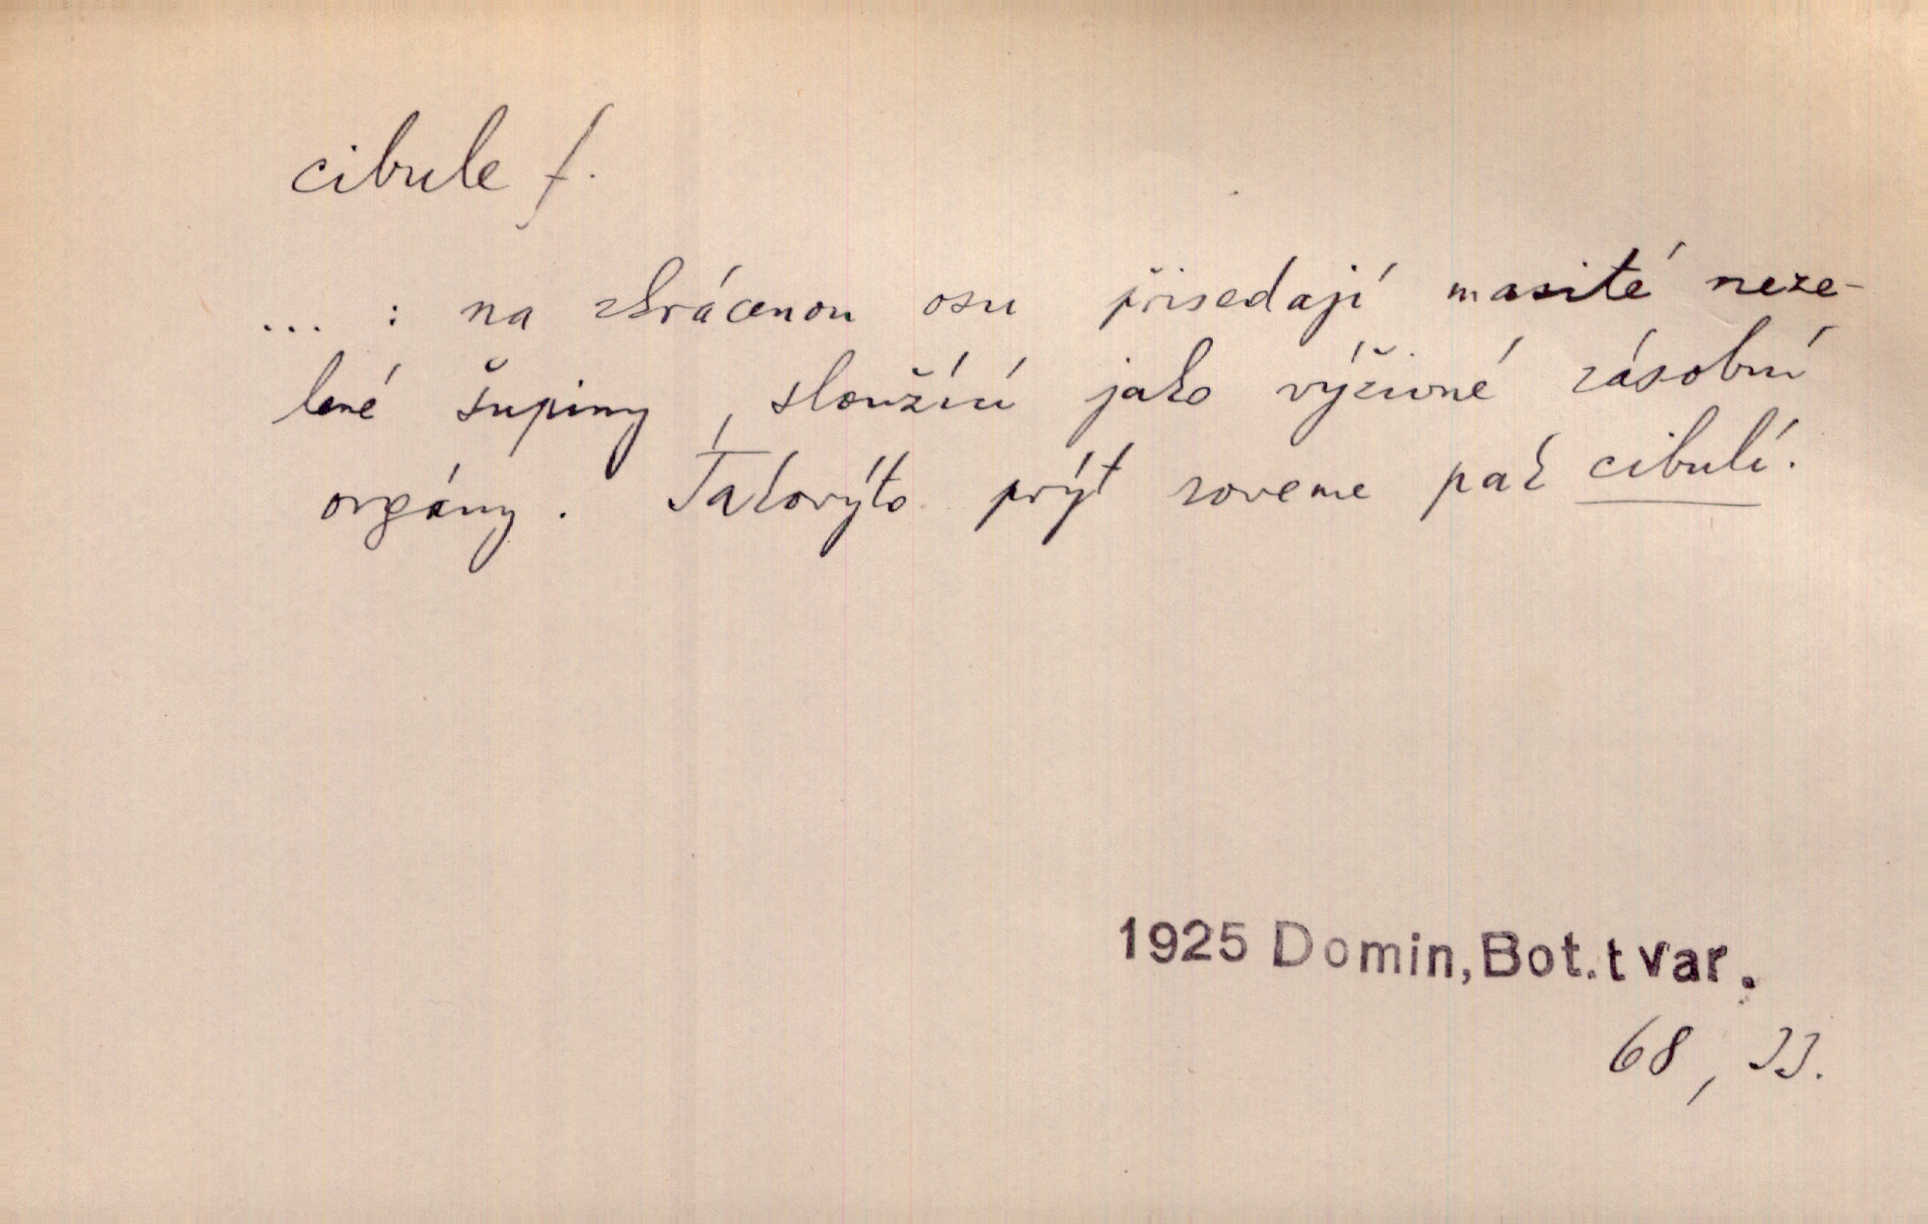 cibule f.
... : na zkrácenou osu přisedají masité neze-
lené šupiny, sloužící jako výživné zásobní
orgány. Takovýto prýt zoveme pak cibulí.
1925 Domin, Bot. tvar.
68,